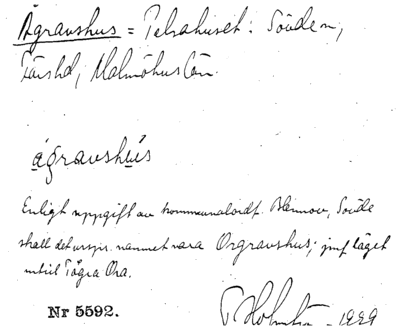 Ågravshus = Pelsahuset: Sövdem,
Färshd, Malmöhus län.
ágravshùs
Enligt uppgift av kommunalordf. Sövde
skall det urspr. namnet vara Orgravshus; jmf läget
intill Tögra Ora.
Nr 5592.
Holm 1929